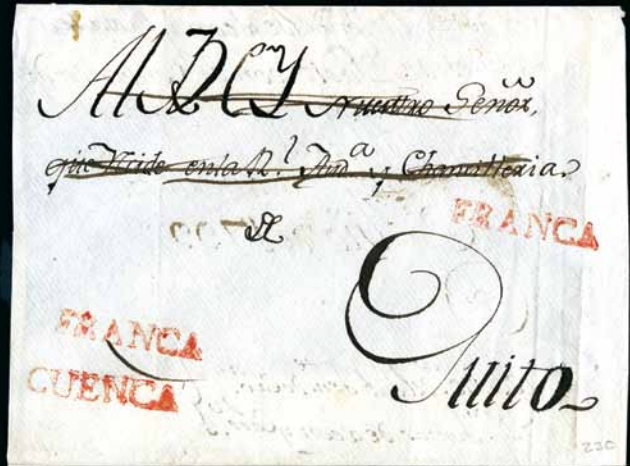 Al REY Nuestro Señor,
que reside en la R.l Aud.a y Chancilleria.
de
FRANCA
FRANCA
CUENCA
Quito
230